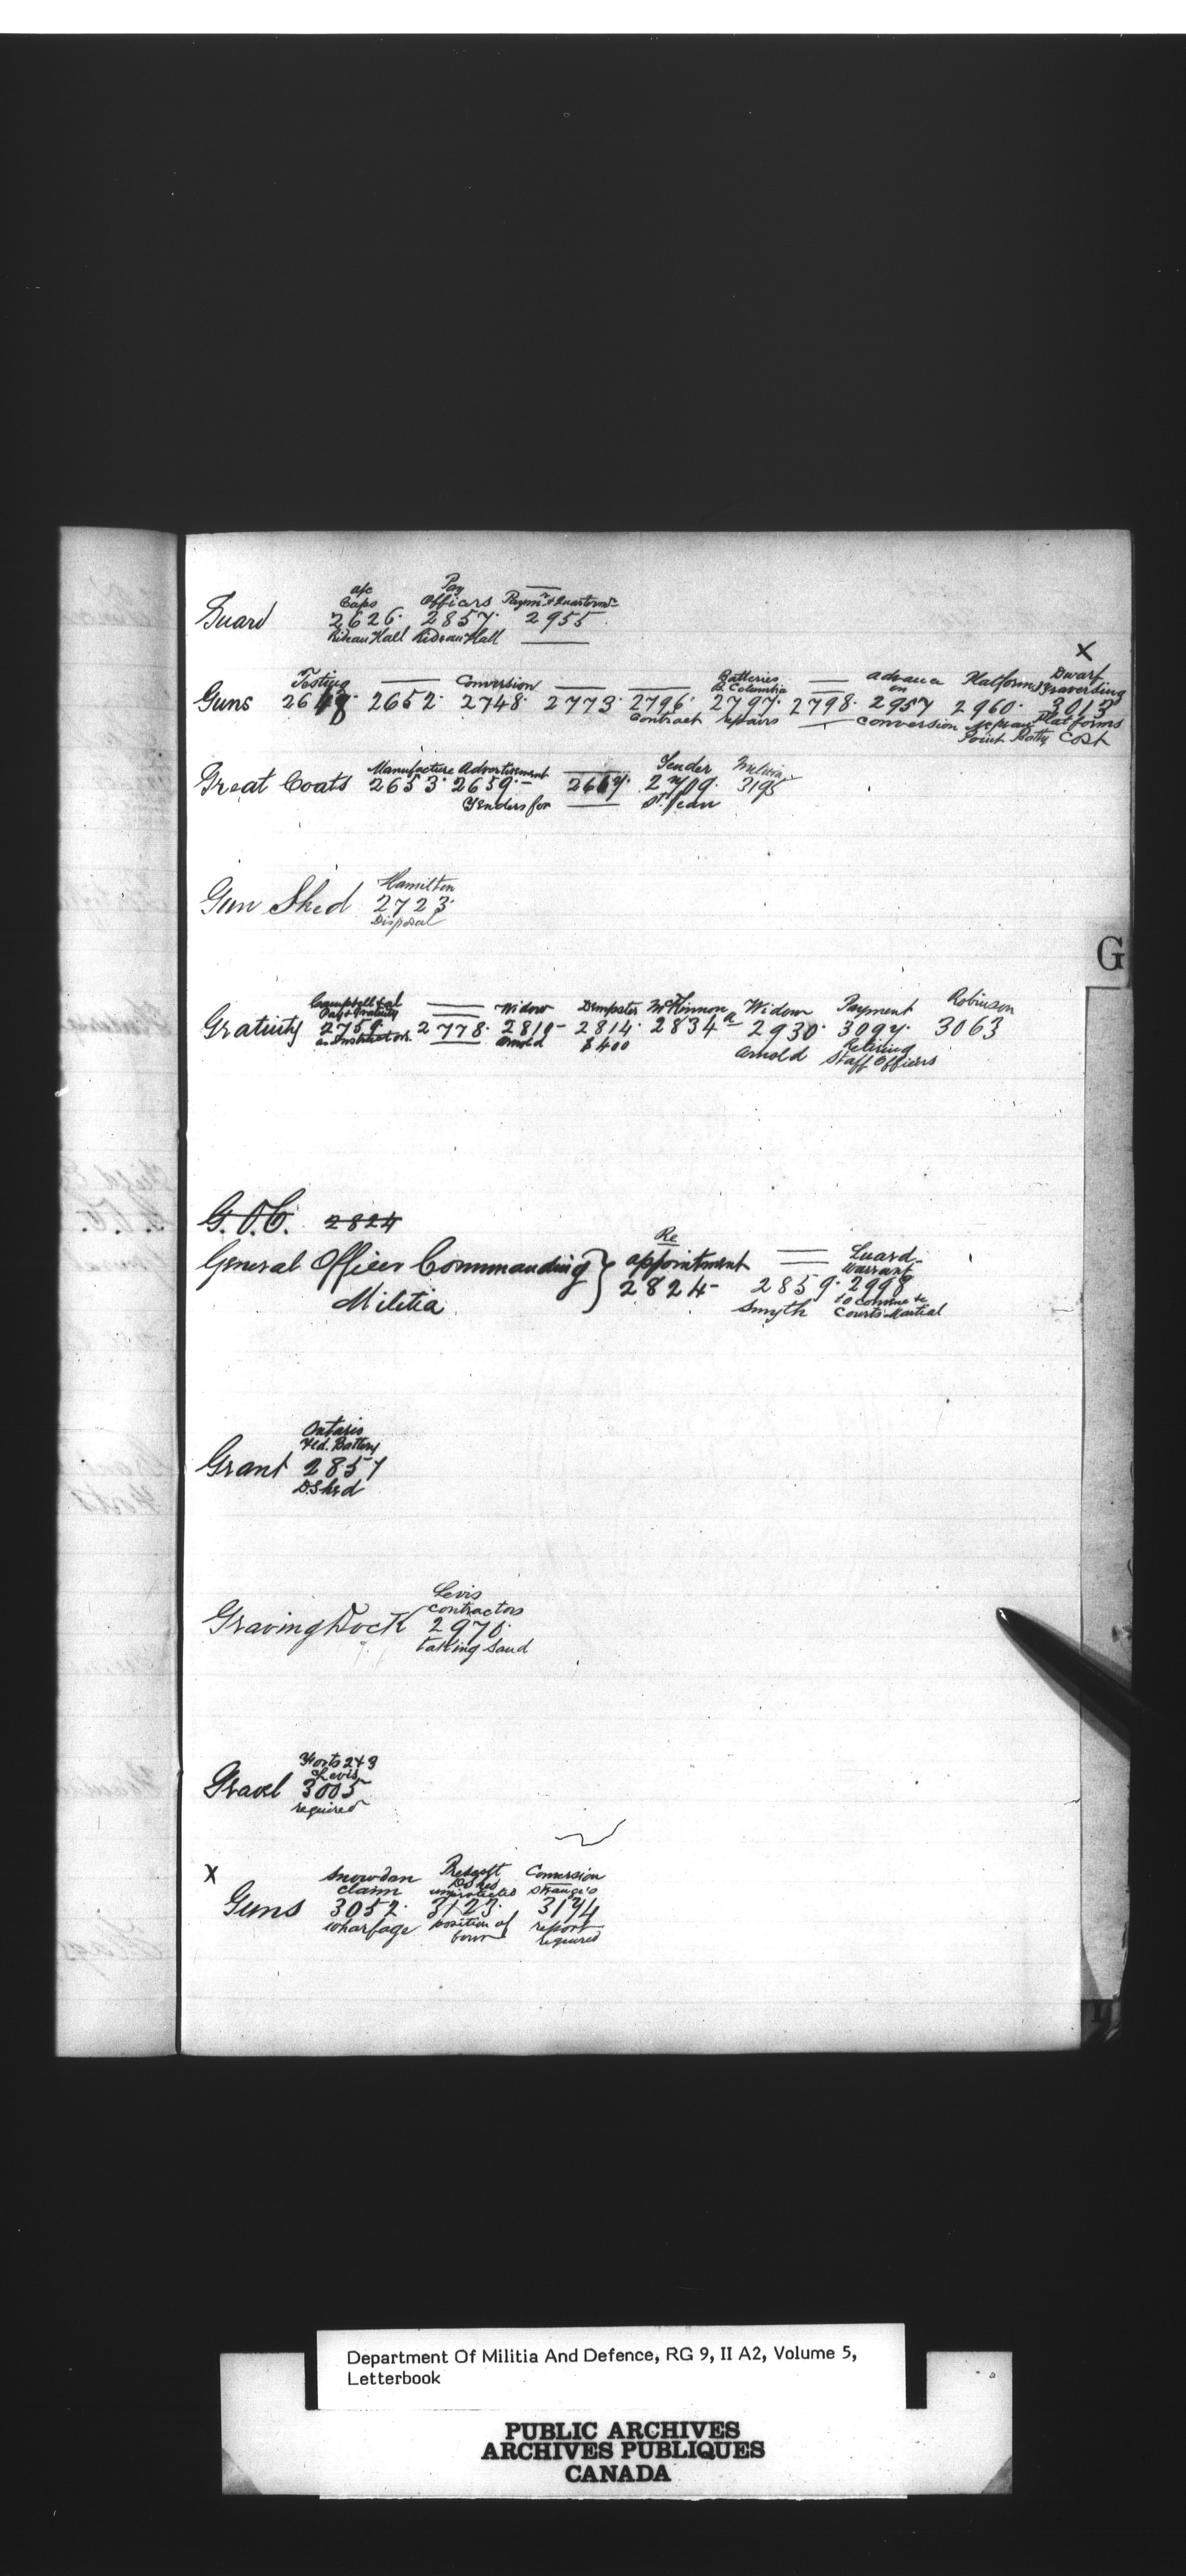 a/c Pay ——
Caps Officers Paymr & Quartermr
Guard 2626. 2857. 2955
Rideau Hall Rideau Hall ——
X
Testing —— Conversion —— —— Batteries —— advance Platforms Dwarf
B. Columbia —— on traversing
Guns 2648. 2652. 2748. 2773. 2796. 2797. 2798. 2957 2960. 3013
contract repairs —— conversion Platforms
Point Batty Cost
Manufacture Advertisement —— Tender Militia
Great Coats 2653. 2659.– 2667. 2709. 3195
Tenders for —— St. Jean
Hamilton
Gun Shed 2723.
Disposal
G
Campbell & al —— Widow Dempster McKinnon Widow Payment Robinson
Pay & Gratuity ——
Gratuity 2759. 2778. 2810– 2814. 2834 a 2930. 3094. 3063
as Instructors. —— Arnold $400 Arnold Retiring
Staff Officers
G.O.C. 2824
Re —— Luard
General Officer Commanding } appointment —— Warrant
Militia 2824– 2859. 2998
Smyth to convene
Courts Martial
Ontario
Fld. Battery
Grant 2857
D. Shed
Levis
contractors
Graving Dock 2970.
taking sand
Forts 2 & 3
Levis
Gravel 3005
required
X
Snowdan Prescott Conversion
claim D Shed Strange's
unprotected
Guns 3052. 3123. 3174
wharfage position of report
required
Department Of Militia And Defence, RG 9, II A2, Volume 5,
Letterbook
PUBLIC ARCHIVES
ARCHIVES PUBLIQUES
CANADA